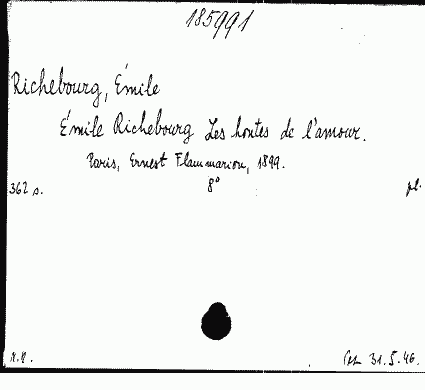 185991
Richebourg, Émile
Émile Richebourg Les hontes de l'amour.
Paris, Ernest Flammarion, 1899.
362 s. 8° pl.
31.5.46.